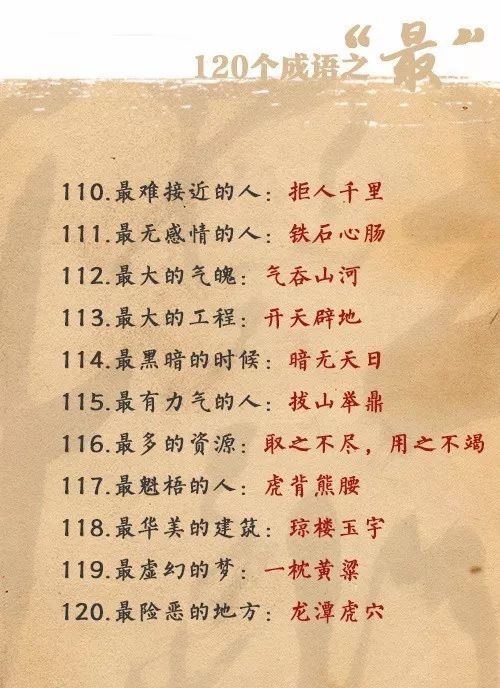 120个成语之“最”
110.最难接近的人：拒人千里
111.最无感情的人：铁石心肠
112.最大的气魄：气吞山河
113.最大的工程：开天辟地
114.最黑暗的时候：暗无天日
115.最有力气的人：拔山举鼎
116.最多的资源：取之不尽，用之不竭
117.最魁梧的人：虎背熊腰
118.最华美的建筑：琼楼玉宇
119.最虚幻的梦：一枕黄粱
120.最险恶的地方：龙潭虎穴